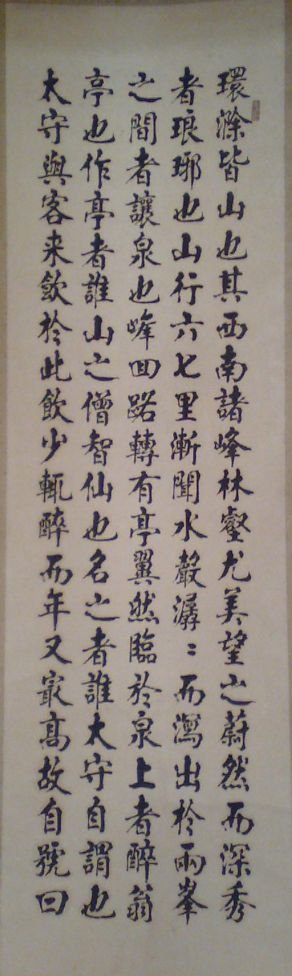 環滁皆山也其西南諸峰林壑尤美望之蔚然而深秀
者琅琊也山行六七里漸聞水聲潺〻而瀉出於兩峯
之間者讓泉也峰回路轉有亭翼然臨於泉上者醉翁
亭也作亭者誰山之僧智仙也名之者誰太守自謂也
太守與客来飲於此飲少輒醉而年又㝡高故自號曰